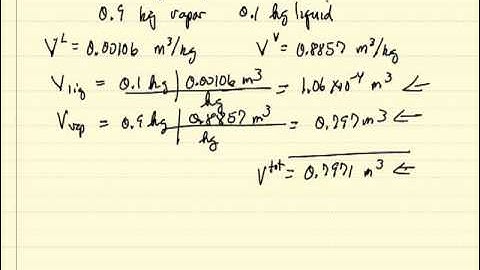 0.9 kg vapor 0.1 kg liquid
V^L = 0.00106 m³/kg V^V = 0.8857 m³/kg
V_liq = 0.1 kg | 0.00106 m³ / kg = 1.06 x10⁻⁴ m³ ←
V_vap = 0.9 kg | 0.8857 m³ / kg = 0.797 m³ ←
V^tot = 0.7971 m³ ←